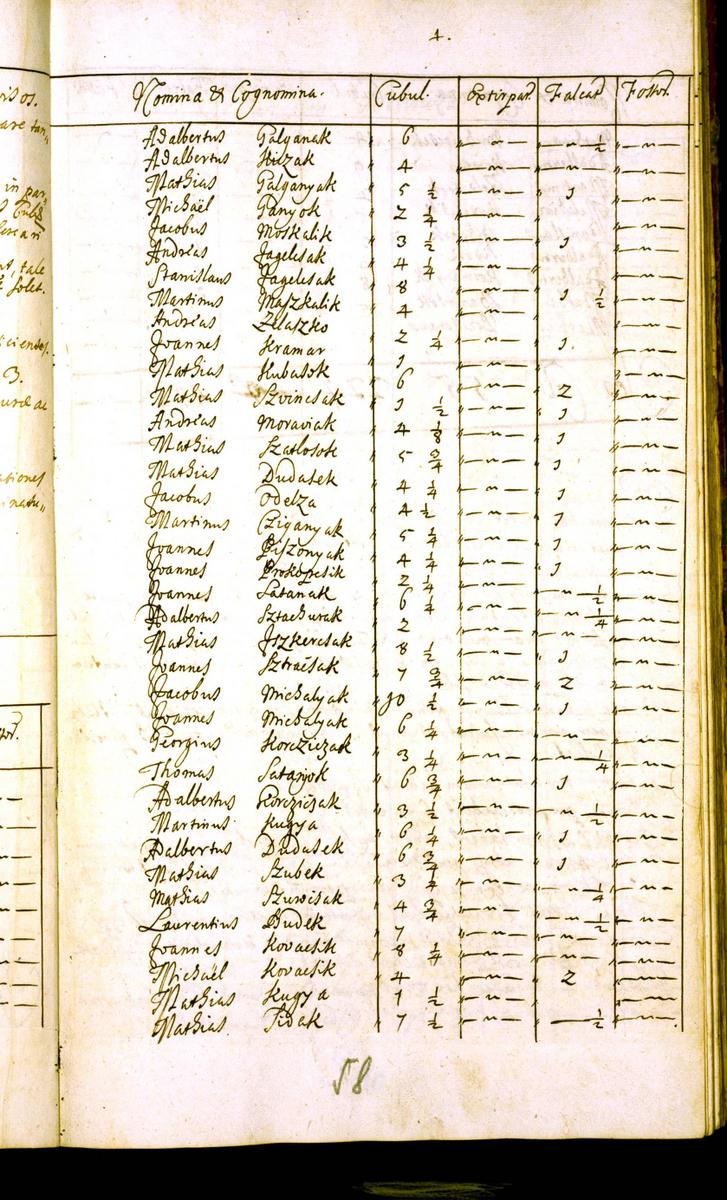 4.
Nomina & Cognomina. Cubul. Extirpat. Falcat. Fossor.
Adalbertus Galganak 6 „—„— —„—½ „—„—
Adalbertus Hilzak 4 „—„— —„— „—„—
Mathias Galganyak 5 ½ „—„— 1 „—„—
Michaël Ganyok 2 ¼ „—„— „—„—
Jacobus Moskalik 3 ½ „—„— 1 „—„—
Andreas Jagelcsak 4 ¼ „—„— „—„—
Stanislaus Jagelcsak 8 „—„— 1 ½ „—„—
Martinus Maszkalik 4 „—„— „—„—
Andreas Zelaszko 2 ¼ „—„— 1 „—„—
Joannes Kramar 1 „—„— „—„—
Mathias Hubasok 6 „—„— 2 „—„—
Mathias Szvincsak 1 ½ „—„— 1 „—„—
Andreas Moraviak 4 ⅛ „—„— 1 „—„—
Mathias 5 ¾ „—„— 1 „—„—
Mathias Dudasek 4 ¼ „—„— 1 „—„—
Jacobus Odelza 4 ½ „—„— 1 „—„—
Martinus Cziganyak 5 ¼ „—„— 1 „—„—
Joannes 4 ¼ „—„— 1 „—„—
Joannes Prokopcsik 2 ¼ „—„— —„—½ „—„—
Joannes Satanak 6 ¼ „—„— —„—¼ „—„—
Adalbertus Sztachurak 2 „—„— —„— „—„—
Mathias Iszkercsak 8 ½ „—„— 1 „—„—
Joannes Sztracsak 7 ¾ „—„— 2 „—„—
Jacobus Michalyak 10 ½ „—„— 1 „—„—
Joannes Michalyak 6 ¼ „—„— —„— „—„—
Georgius Korcziczak 3 ¼ „—„— —„—¼ „—„—
Thomas Satanyok 6 ¾ „—„— 1 „—„—
Adalbertus Korczicsak 3 ½ „—„— —„—½ „—„—
Martinus Kugya 6 ¼ „—„— 1 „—„—
Adalbertus Dudasek 6 ¾ „—„— 1 „—„—
Mathias Szubek 3 ¼ „—„— —„—¼ „—„—
Mathias Szuvcsak 4 ¾ „—„— —„—½ „—„—
Laurentius Dudek 7 „—„— —„— „—„—
Joannes Kovacsik 8 ¼ „—„— „—„—
Michaël Kovacsik 4 „—„— 2 „—„—
Mathias Kugya 1 ½ „—„— „—„—
Mathias Sidak 7 ½ „—„— —½ „—„—
58